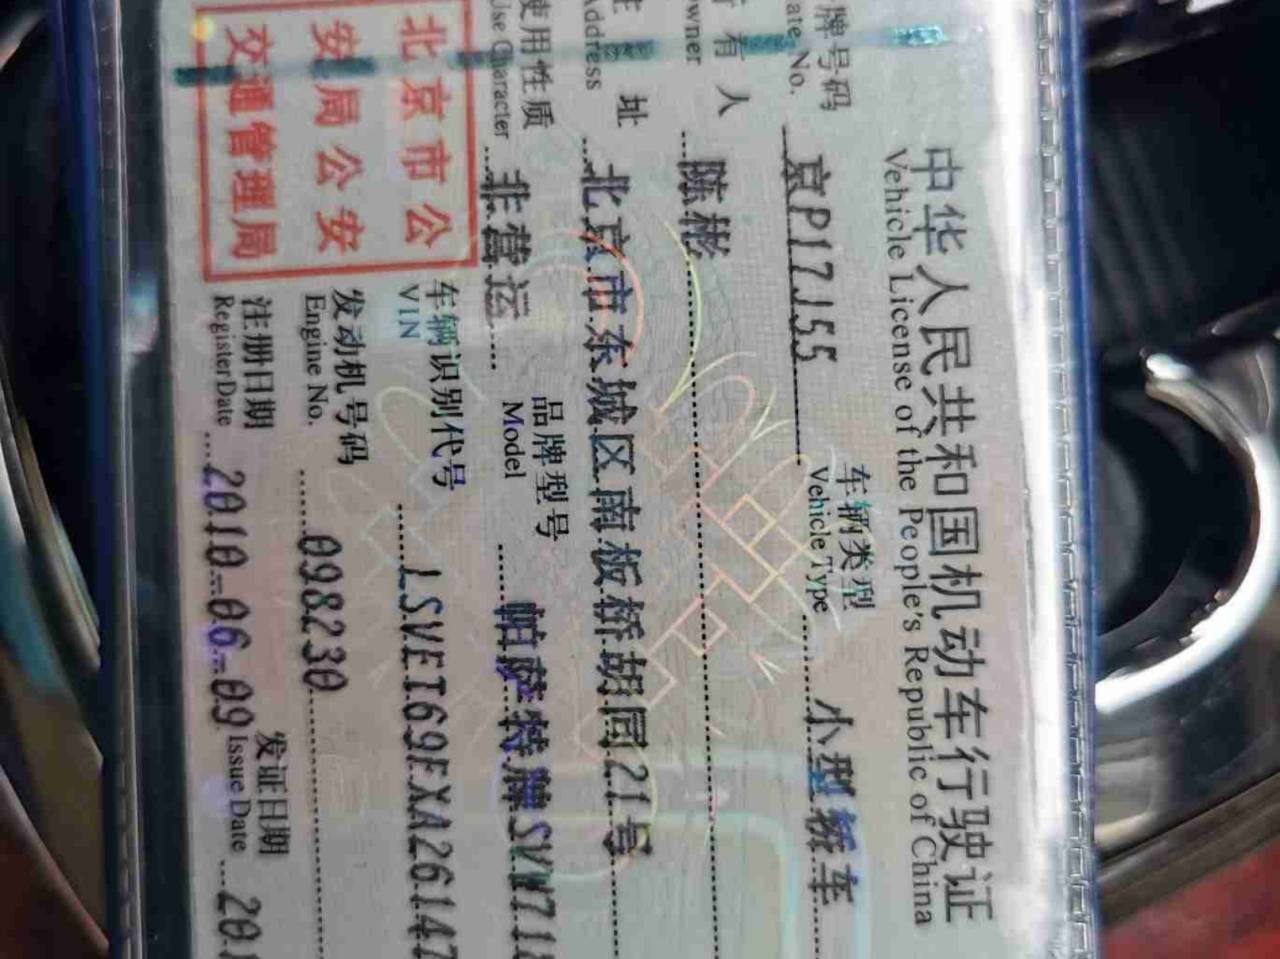 中华人民共和国机动车行驶证
Vehicle License of the People's Republic of China
牌号码 京P17J55 车辆类型 小型轿车
ate No. Vehicle Type
有人 陈彬
wner
址 北京市东城区南板桥胡同21号
Address
使用性质 非营运 品牌型号 帕萨特牌SVW71
Use Character Model
北京市公
安局公安
交通管理局
车辆识别代号 LSVET69FXA26147
VIN
发动机号码 098230
Engine No.
注册日期 2010-06-09 发证日期 20
Register Date Issue Date